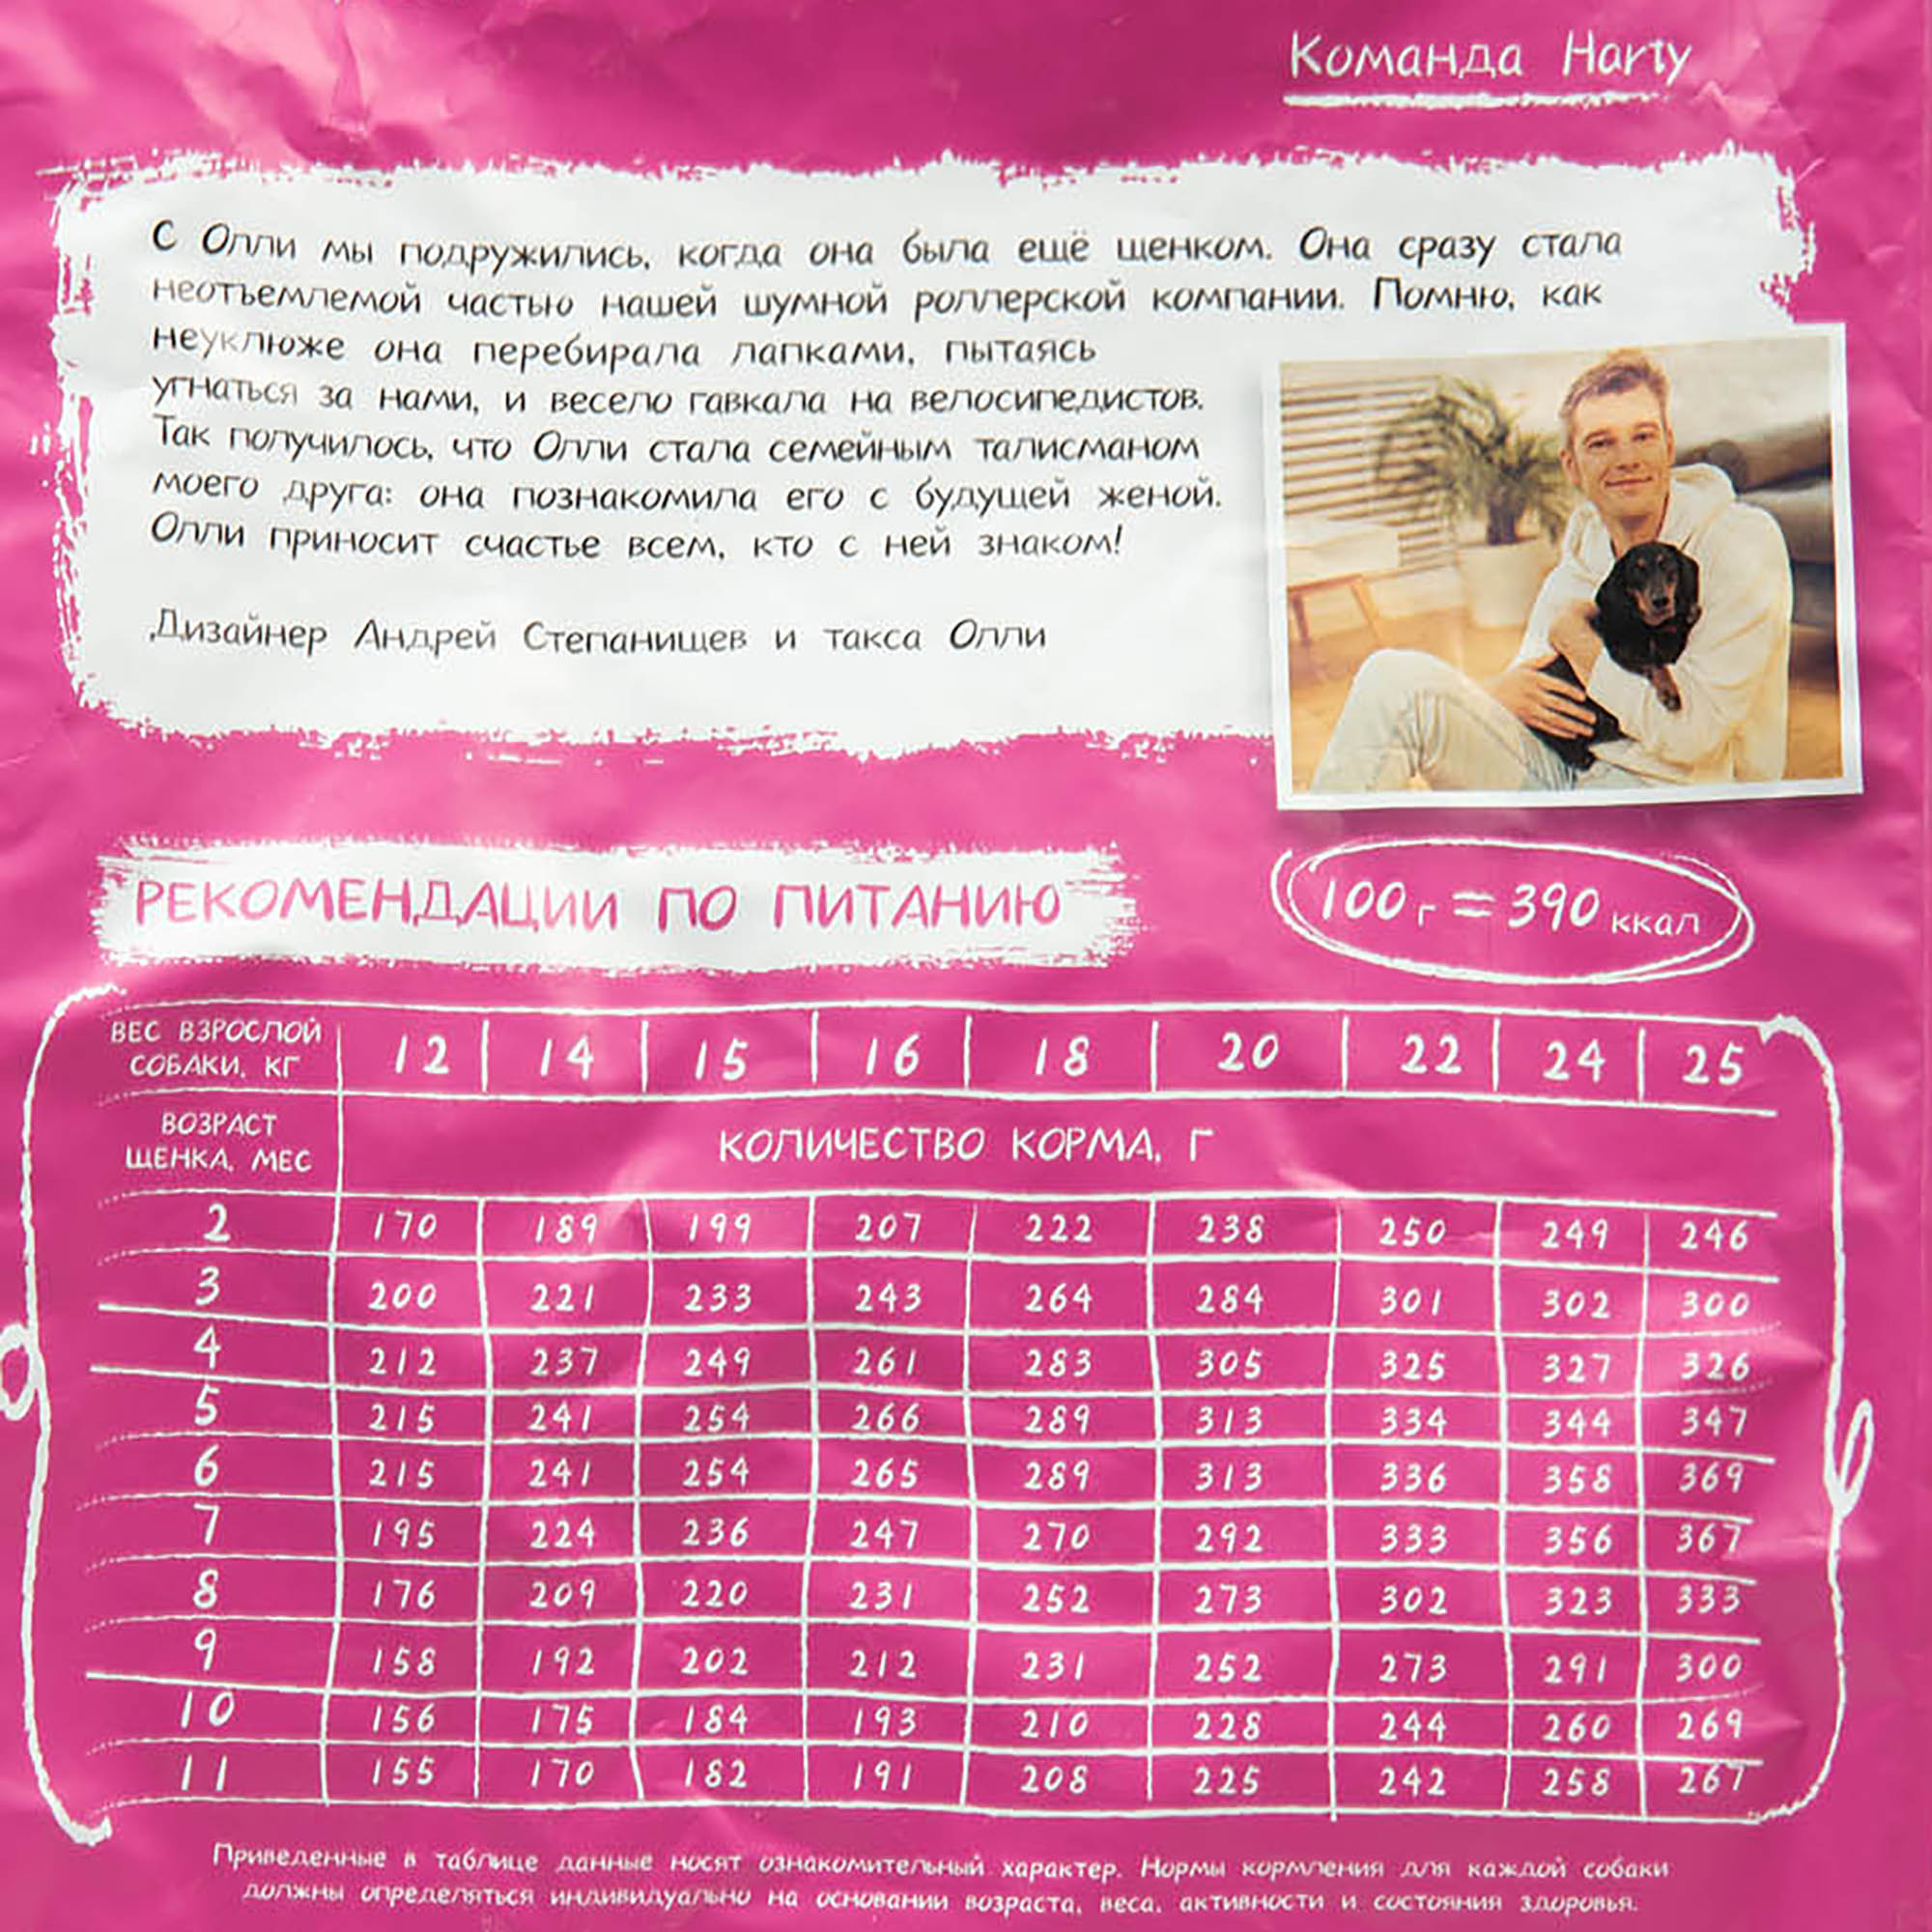 Команда Harty
С Олли мы подружились, когда она была ещё щенком. Она сразу стала
неотъемлемой частью нашей шумной роллерской компании. Помню, как
неуклюже она перебирала лапками, пытаясь
угнаться за нами, и весело гавкала на велосипедистов.
Так получилось, что Олли стала семейным талисманом
моего друга: она познакомила его с будущей женой.
Олли приносит счастье всем, кто с ней знаком!
Дизайнер Андрей Степанищев и такса Олли
РЕКОМЕНДАЦИИ ПО ПИТАНИЮ
100 г = 390 ккал
ВЕС ВЗРОСЛОЙ
СОБАКИ, КГ
12 14 15 16 18 20 22 24 25
ВОЗРАСТ
ЩЕНКА, МЕС
КОЛИЧЕСТВО КОРМА, Г
2 170 189 199 207 222 238 250 249 246
3 200 221 233 243 264 284 301 302 300
4 212 237 249 261 283 305 325 327 326
5 215 241 254 266 289 313 334 344 347
6 215 241 254 265 289 313 336 358 369
7 195 224 236 247 270 292 333 356 367
8 176 209 220 231 252 273 302 323 333
9 158 192 202 212 231 252 273 291 300
10 156 175 184 193 210 228 244 260 269
11 155 170 182 191 208 225 242 258 267
Приведенные в таблице данные носят ознакомительный характер. Нормы кормления для каждой собаки
должны определяться индивидуально на основании возраста, веса, активности и состояния здоровья.